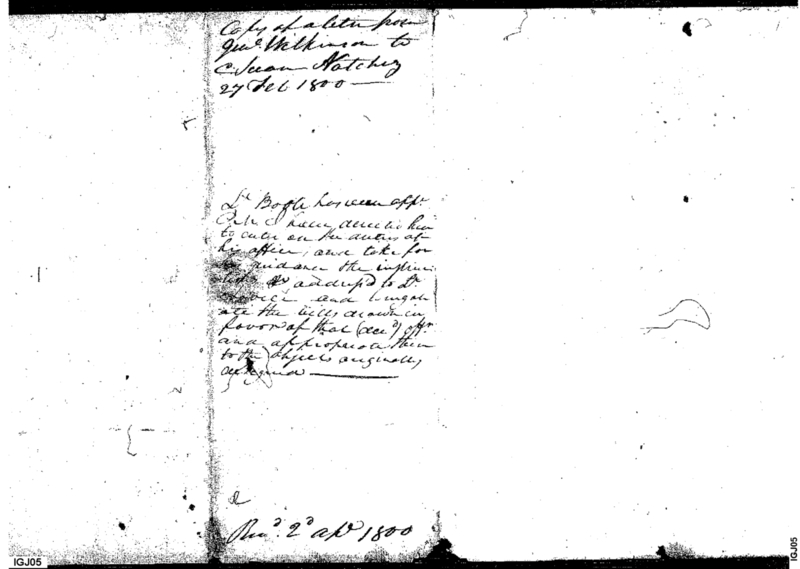 Copy of a letter from
Genl. Wilkinson to
C. Swan Natchez
27 Feb 1800
Lt. Bogle has been appd.
to enter on the duties of
his office, and take for
his guidance the instruc
tions addressed to Lt.
and
ate the bills drawn in
favor of that (decd.) offr.
and appropriate them
to the objects originally
designed
Recd. 2d Apl. 1800
IGJ05
IGJ05